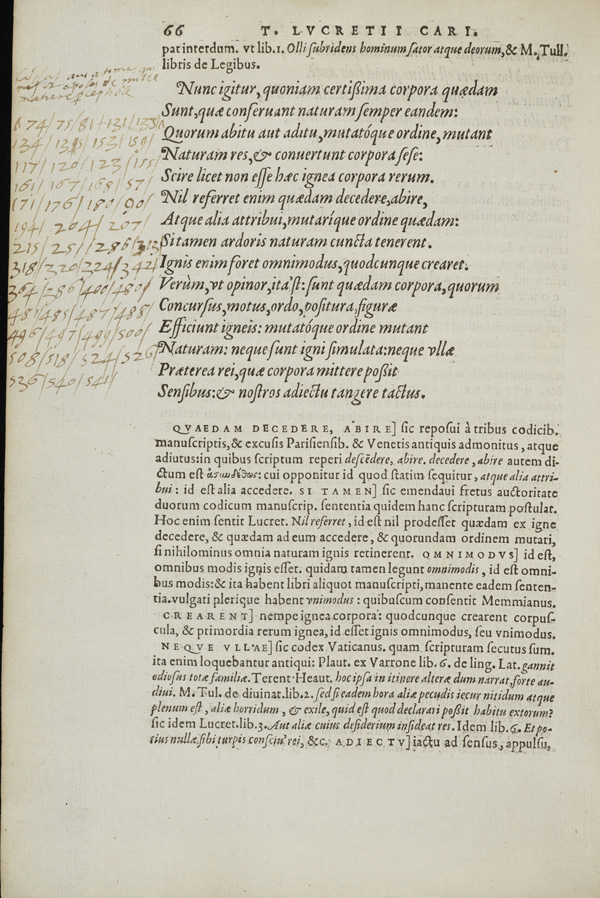 66 T. LVCRETII CARI.
pat interdum. vt lib.1. Olli subridens hominum sator atque deorum, & M. Tull.
libris de Legibus.
Nunc igitur, quoniam certißima corpora quædam
Sunt, quæ conseruant naturam semper eandem:
Quorum abitu aut aditu, mutatóque ordine, mutant
Naturam res, & conuertunt corpora sese:
Scire licet non esse hæc ignea corpora rerum.
Nil referret enim quædam decedere, abire,
Atque alia attribui, mutaríque ordine quædam:
Si tamen ardoris naturam cuncta tenerent.
Ignis enim foret omnimodus, quodcunque crearet.
Verùm, vt opinor, ita'st: sunt quædam corpora, quorum
Concursus, motus, ordo, positura, figuræ
Efficiunt igneis: mutatóque ordine mutant
Naturam: neque sunt igni simulata: neque vllæ
Præterea rei, quæ corpora mittere poßit
Sensibus: & nostros adiectu tangere tactus.
74/ 75/ 81/ 131/ 133/
134/ 153/ 159/
117/ 120/ 123/ 155/
161/ 167/ 168/ 57/
171/ 176/ 180/ 90/
194/ 204/ 207/
215/ 251/ 286/ 313/
318/ 320/ 324/ 342/
364/ 286/ 400/ 480/
481/ 485/ 487/ 488/
496/ 497/ 499/ 500/
508/ 518/ 524/ 526/
536/ 540/ 541/
QVAEDAM DECEDERE, ABIRE] sic reposui à tribus codicib.
manuscriptis, & excusis Parisiensib. & Venetis antiquis admonitus, atque
adiutus: in quibus scriptum reperi descēdere, abire. decedere, abire autem di-
ctum est: cui opponitur id quod statim sequitur, atque alia attri-
bui: id est alia accedere. SI TAMEN] sic emendaui fretus auctoritate
duorum codicum manuscrip. sententia quidem hanc scripturam postulat.
Hoc enim sentit Lucret. Nil referret, id est nil prodesset quædam ex igne
decedere, & quædam ad eum accedere, & quorundam ordinem mutari,
si nihilominus omnia naturam ignis retinerent. OMNIMODVS] id est,
omnibus modis ignis esset. quidam tamen legunt omnimodis, id est omni-
bus modis: & ita habent libri aliquot manuscripti, manente eadem senten-
tia. vulgati plerique habent vnimodus: quibuscum consentit Memmianus.
CREARENT] nempe ignea corpora: quodcunque crearent corpus-
cula, & primordia rerum ignea, id esset ignis omnimodus, seu vnimodus.
NEQVE VLLAE] sic codex Vaticanus. quam scripturam secutus sum.
ita enim loquebantur antiqui: Plaut. ex Varrone lib. 6. de ling. Lat. gannit
odiosus totæ familiæ. Terent. Heaut. hoc ipsa in itinere alteræ dum narrat, forte au-
diui. M. Tul. de diuinat. lib. 2. sed si eadem hora aliæ pecudis iecur nitidum atque
plenum est, aliæ horridum, & exile, quid est quod declarari poßit habitu extorum?
sic idem Lucret. lib. 3. Aut aliæ cuius desiderium insideat res. Idem lib. 6. Et po-
tius nullæ sibi turpis consciu' rei, &c. ADIECTV] iactu ad sensus, appulsu,